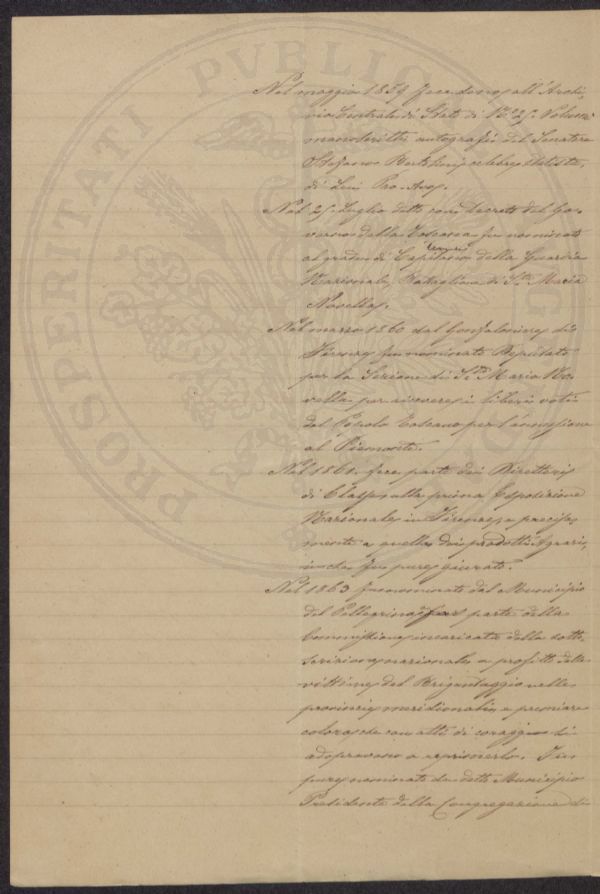 Nel maggio 1859 fece dono all'Archi-
vio Centrale di Stato di N.° 25 Volumi
manoscritti autografi del Senatore
Stefano Bertolini celebre Statista,
di Lui Pro-Avo.
Nel 25 Luglio detto con Decreto del Go-
verno della Toscana fu nominato
al grado di Capitano della Guardia
Nazionale, Battaglione di S.ta Maria
Novella.
Nel marzo 1860 dal Gonfaloniere di
Firenze fu nominato Deputato
per la Sezione di S.ta Maria No-
vella per ricevere i liberi voti
del Popolo Toscano per l'annessione
al Piemonte.
Nel 1861 fece parte dei Direttori
di Classe alla prima Esposizione
Nazionale in Firenze, e precisa
mente a quella dei prodotti Agrari,
in che fu pure giurato.
Nel 1863 fu nominato dal Municipio
del Pellegrino a far parte della
Commissione incaricata della sotto-
scrizione nazionale a profitto delle
vittime del Brigantaggio nelle
provincie meridionali, e premiare
coloro che con atti di coraggio si
adopravano a reprimerlo. Fu
pure nominato da detto Municipio
Presidente della Congregazione di
PROSPERITATI PVBLICAE